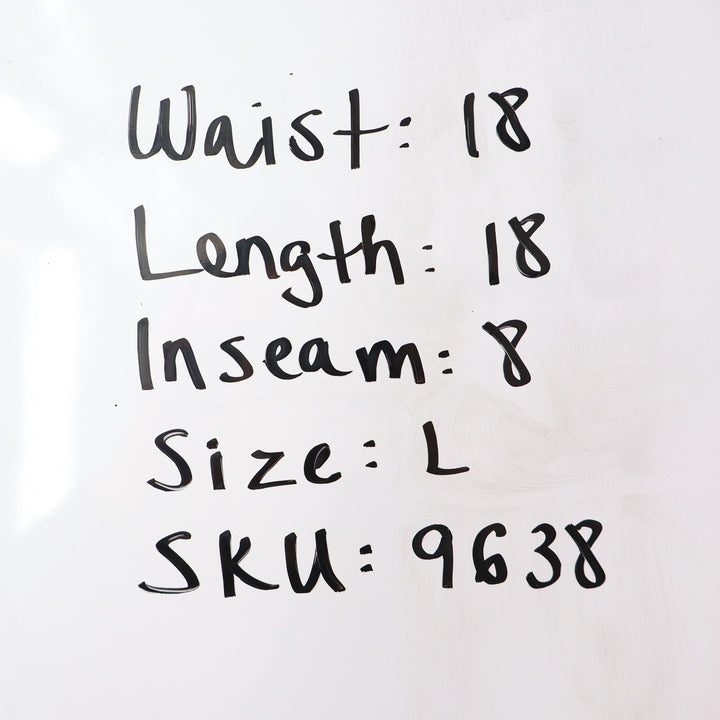 Waist: 18
Length: 18
Inseam: 8
Size: L
SKU: 9638